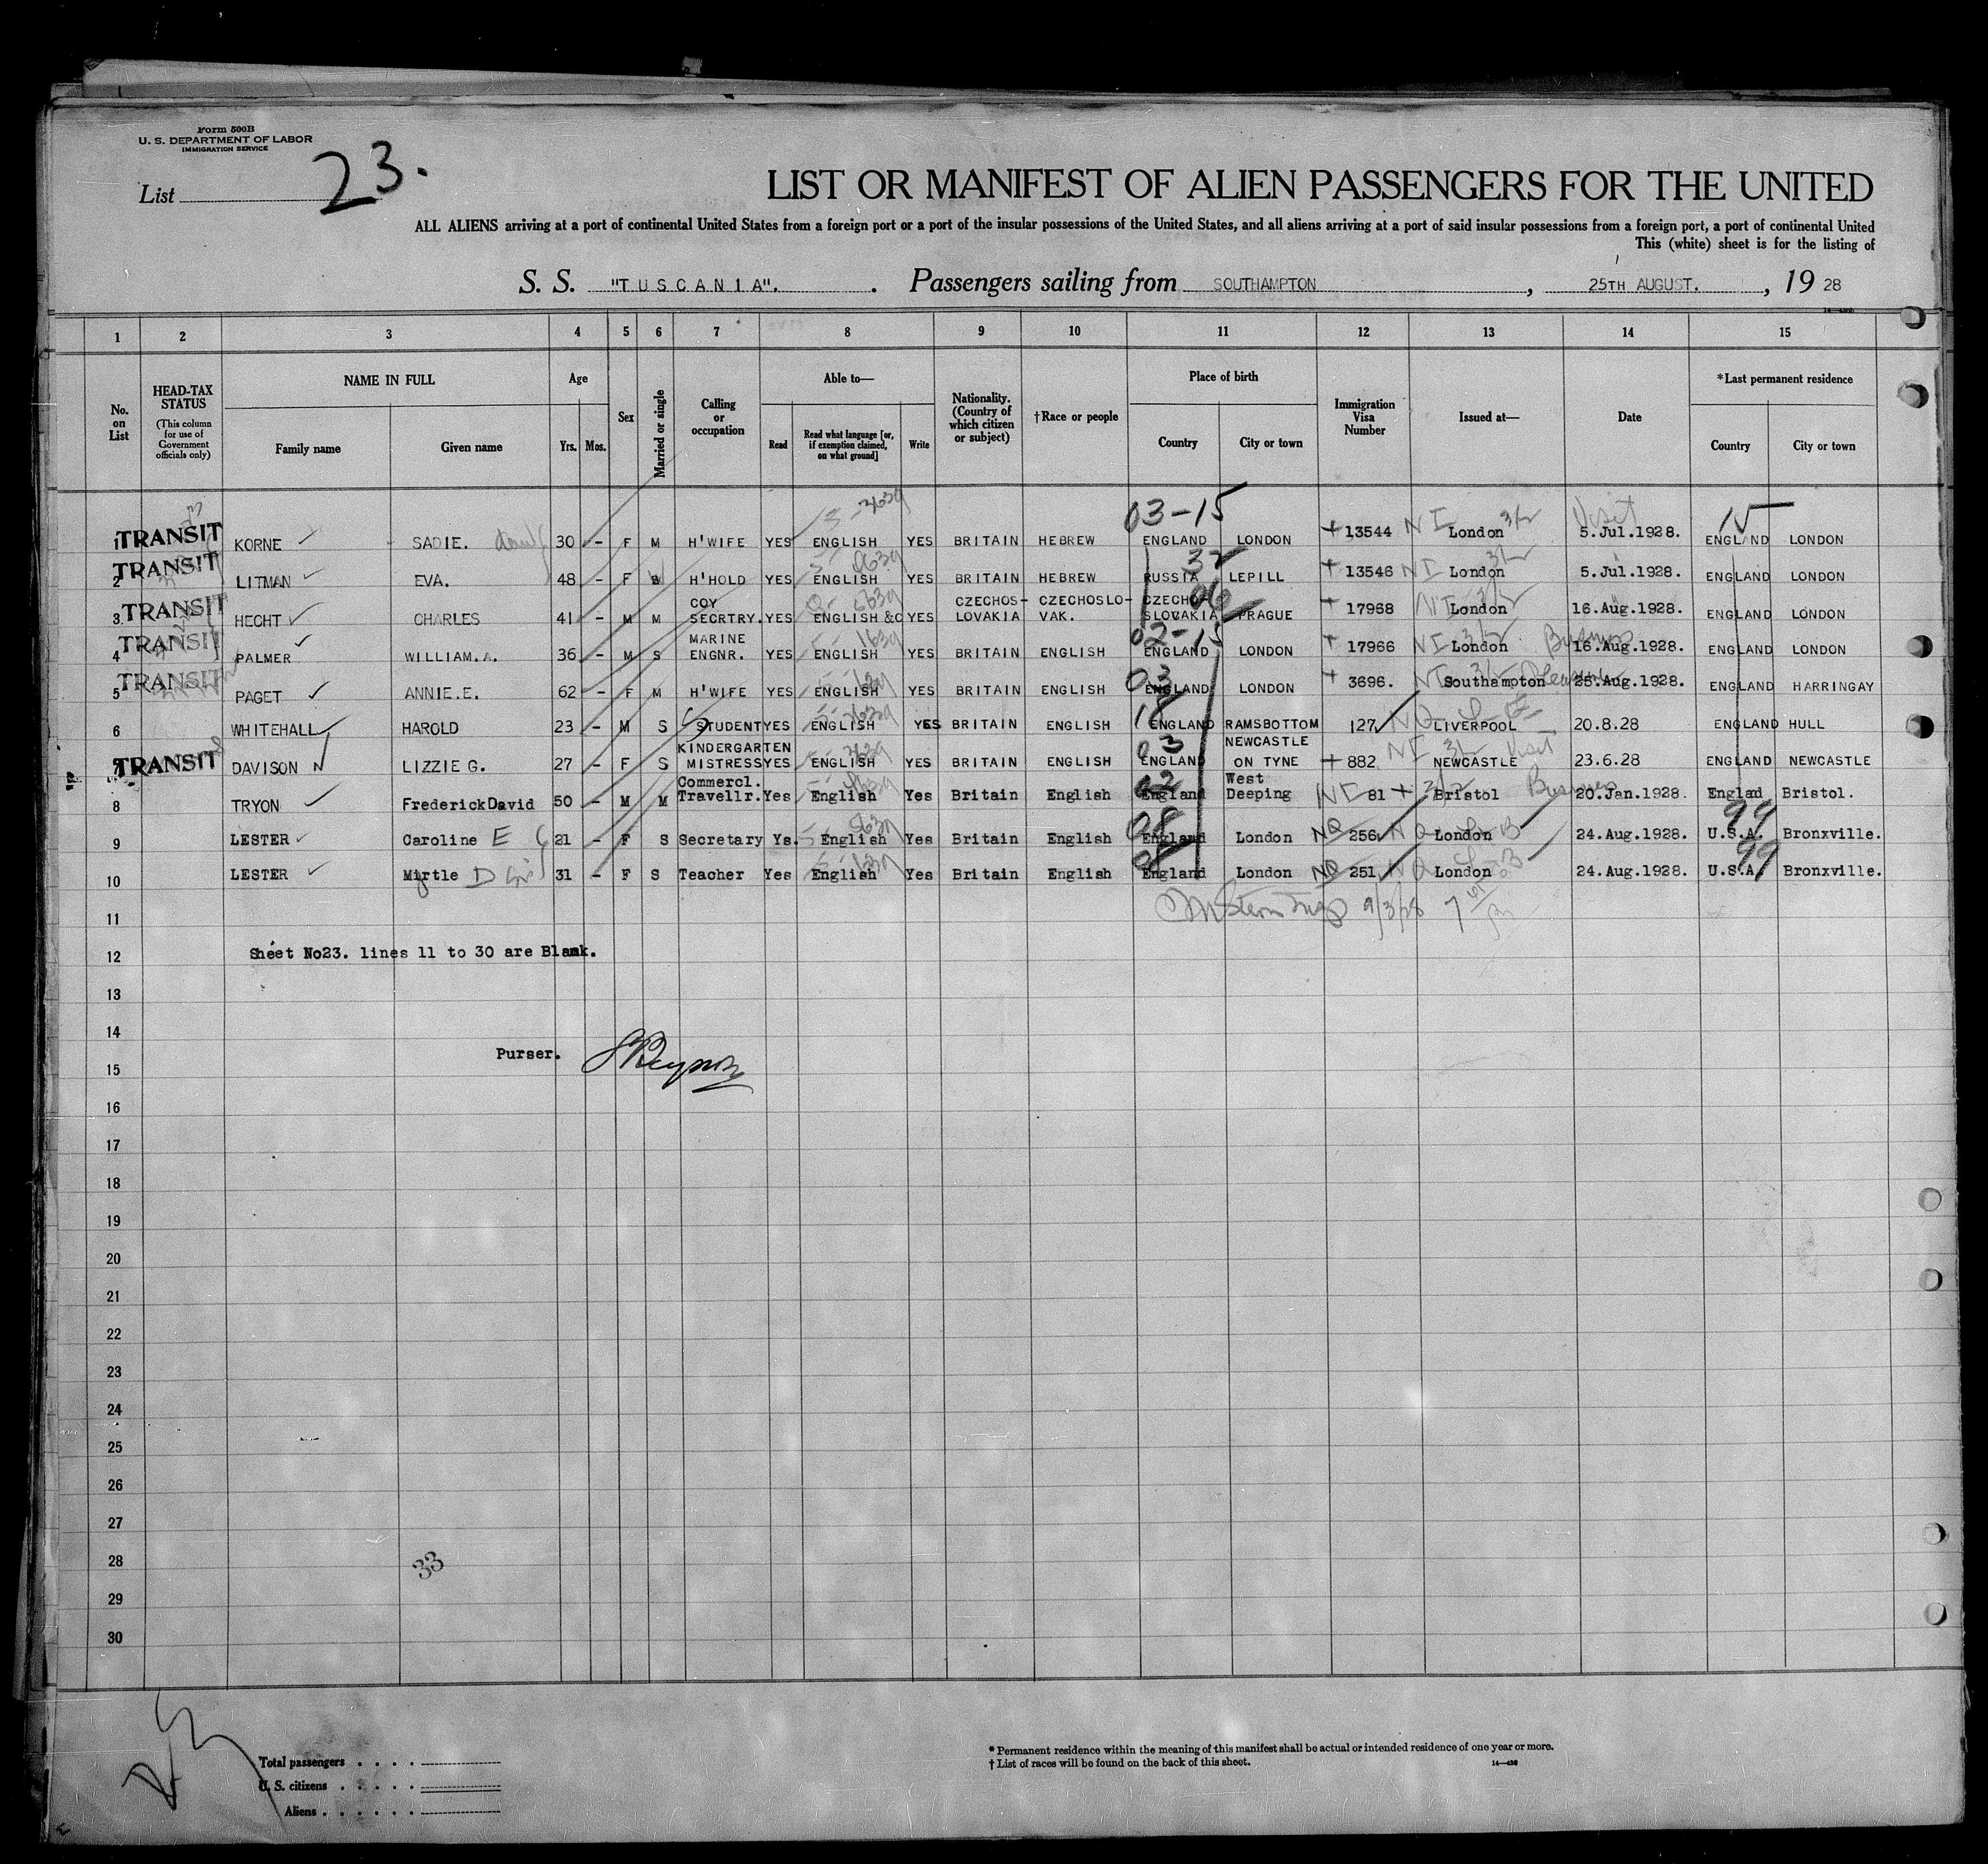 Form 500B
U. S. DEPARTMENT OF LABOR
IMMIGRATION SERVICE
List 23.
LIST OR MANIFEST OF ALIEN PASSENGERS FOR THE UNITED
ALL ALIENS arriving at a port of continental United States from a foreign port or a port of the insular possessions of the United States, and all aliens arriving at a port of said insular possessions from a foreign port, a port of continental United
This (white) sheet is for the listing of
S. S. "TUSCANIA". Passengers sailing from SOUTHAMPTON, 25TH AUGUST., 19 28
1 2 3 4 5 6 7 8 9 10 11 12 13 14 15
No. on List
HEAD-TAX STATUS (This column for use of Government officials only)
NAME IN FULL Family name Given name
Age Yrs. Mos.
Sex
Married or single
Calling or occupation
Able to— Read Read what language [or, if exemption claimed, on what ground] Write
Nationality. (Country of which citizen or subject)
†Race or people
Place of birth Country City or town
Immigration Visa Number
Issued at—
Date
*Last permanent residence Country City or town
03-15 Visit 15
1 TRANSIT KORNE SADIE. 30 - F M H'WIFE YES ENGLISH YES BRITAIN HEBREW ENGLAND LONDON +13544 NI London 5.Jul.1928. ENGLAND LONDON
2 TRANSIT LITMAN EVA. 48 - F H'HOLD YES ENGLISH YES BRITAIN HEBREW RUSSIA LEPILL +13546 NI London 5.Jul.1928. ENGLAND LONDON
3 TRANSIT HECHT CHARLES 41 - M M COY SECRTRY. YES ENGLISH &C YES CZECHOS-LOVAKIA CZECHOSLO-VAK. CZECHO-SLOVAKIA PRAGUE + 17968 NI London 16.Aug.1928. ENGLAND LONDON
02-15
4 TRANSIT PALMER WILLIAM.A. 36 - M S MARINE ENGNR. YES ENGLISH YES BRITAIN ENGLISH ENGLAND LONDON + 17966 NI London Business 16.Aug.1928. ENGLAND LONDON
5 TRANSIT PAGET ANNIE.E. 62 - F M H'WIFE YES ENGLISH YES BRITAIN ENGLISH 03 ENGLAND LONDON + 3696. NI Southampton 25.Aug.1928. ENGLAND HARRINGAY
6 WHITEHALL HAROLD 23 - M S STUDENT YES ENGLISH YES BRITAIN ENGLISH ENGLAND RAMSBOTTOM 127 NQ LIVERPOOL 20.8.28 ENGLAND HULL
7 TRANSIT DAVISON LIZZIE G. 27 - F S KINDERGARTEN MISTRESS YES ENGLISH YES BRITAIN ENGLISH 03 ENGLAND NEWCASTLE ON TYNE + 882 NI NEWCASTLE Visit 23.6.28 ENGLAND NEWCASTLE
8 TRYON Frederick David 50 - M M Commercl. Travellr. Yes English Yes Britain English 02 England West Deeping NI 81 + Bristol Business 20.Jan.1928. Englad Bristol.
9 LESTER Caroline E 21 - F S Secretary Ys. English Yes Britain English England London NQ 256 NQ London 24.Aug.1928. 99 U.S.A. Bronxville.
10 LESTER Mirtle D 31 - F S Teacher Yes English Yes Britain English England London NQ 251 NQ London 24.Aug.1928. 99 U.S.A. Bronxville.
11 9/3/28
12 Sheet No23. lines 11 to 30 are Blank.
13
14
Purser.
15
16
17
18
19
20
21
22
23
24
25
26
27
28 33
29
30
Total passengers . . . .
U. S. citizens . . . . .
Aliens . . . . . .
* Permanent residence within the meaning of this manifest shall be actual or intended residence of one year or more.
† List of races will be found on the back of this sheet.